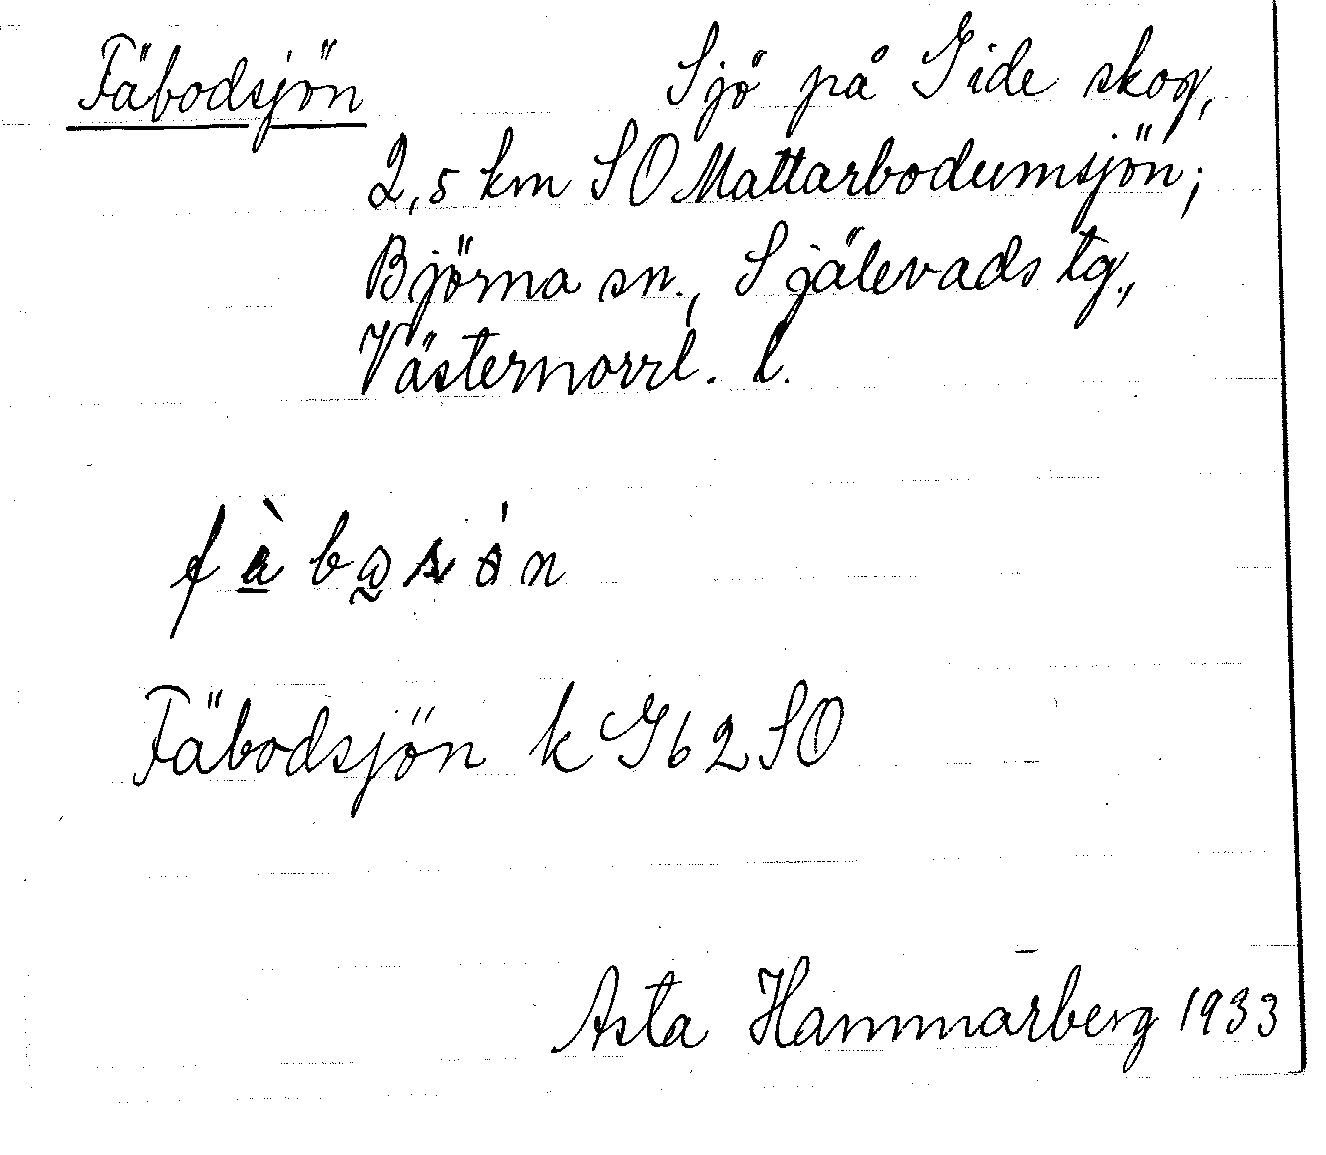 Fäbodsjön Sjö på Gide skog,
2,5 km SO Mattarbodumsjön;
Björna sn., Själevads tg.,
Västernorrl. l.
Fäbodsjön k G62SO
Asta Hammarberg 1933